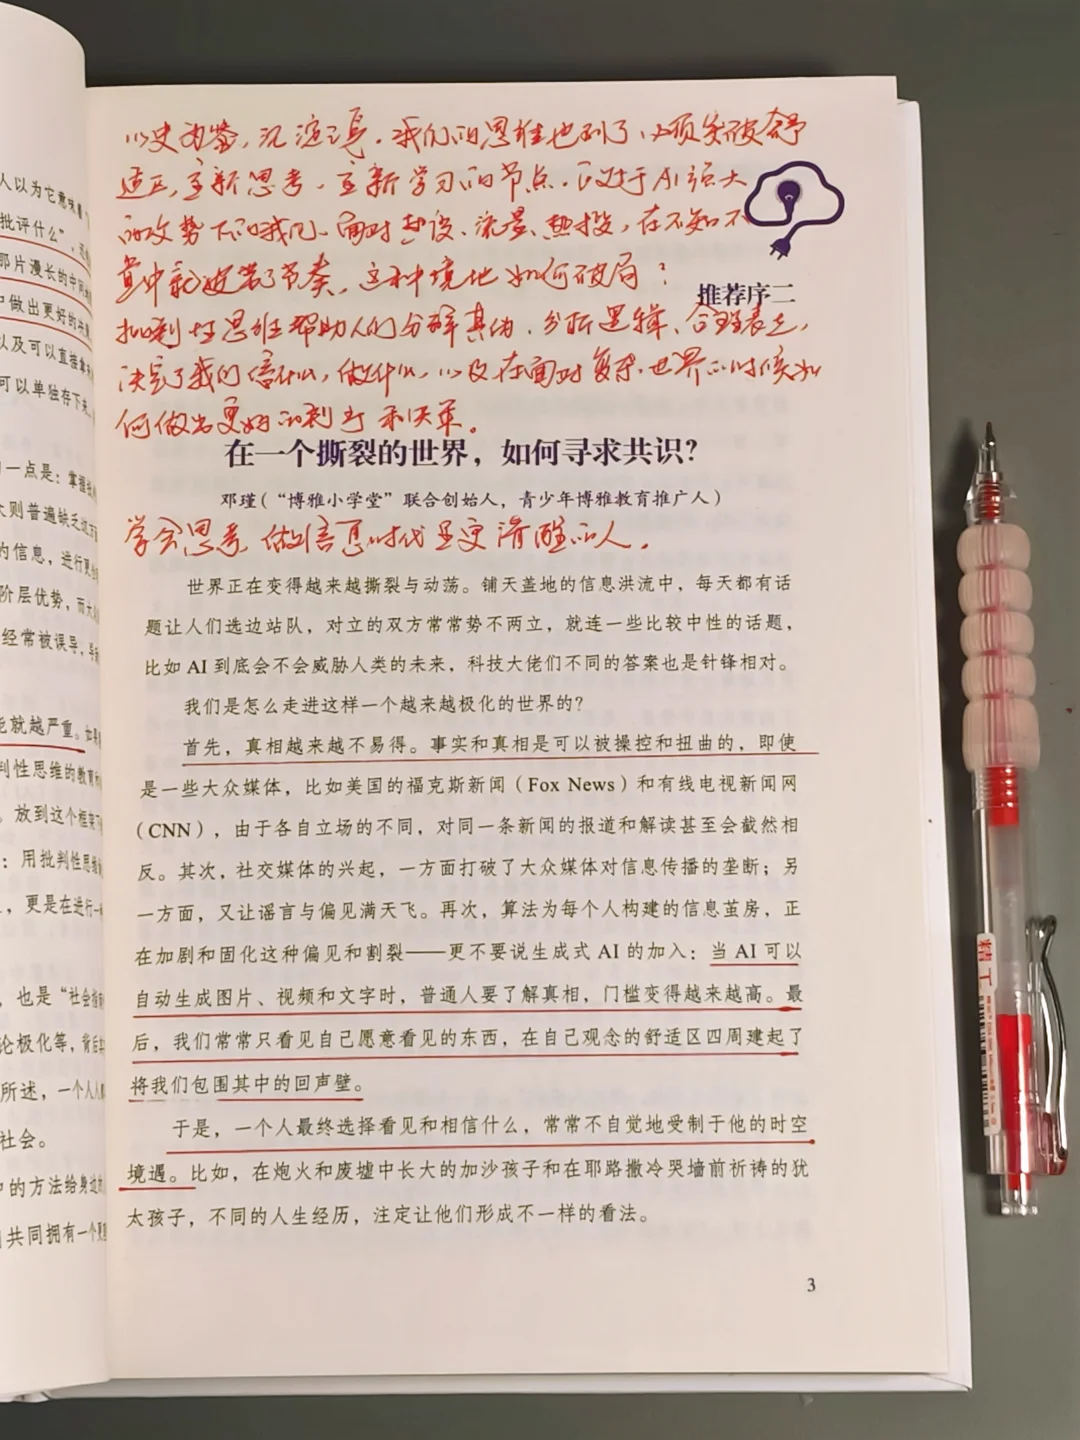 人以为它意味着
批评什么”
那片漫长的中间
做出更好的
以及可以直接
可以单独存下来
一点是：掌握
则普遍缺乏
的信息，进行更
阶层优势，而
经常被误导，
能就越严重。如果
判性思维的教育
。放到这个框架下
：用批判性思维
，更是在进行一
，也是“社会
论极化等，背后
所述，一个人人
社会。
的方法给身边的
共同拥有一个更
以史为鉴，
我们的思维也到了必须突破舒
适区，重新思考、重新学习的节点。
AI强大
的攻势下的我们、面对
流量、热搜，在不知不
觉中就被带了节奏，这种境地如何破局？
推荐序二
批判性思维帮助人们分辨真伪、分析逻辑、合理表达，
决定了我们信什么，做什么，以及在面对复杂世界的时候如
何做出更好的判断和决策。
在一个撕裂的世界，如何寻求共识？
邓瑾（“博雅小学堂”联合创始人，青少年博雅教育推广人）
学会思考 做信息时代里更清醒的人。
世界正在变得越来越撕裂与动荡。铺天盖地的信息洪流中，每天都有话
题让人们选边站队，对立的双方常常势不两立，就连一些比较中性的话题，
比如 AI 到底会不会威胁人类的未来，科技大佬们不同的答案也是针锋相对。
我们是怎么走进这样一个越来越极化的世界的？
首先，真相越来越不易得。事实和真相是可以被操控和扭曲的，即使
是一些大众媒体，比如美国的福克斯新闻（Fox News）和有线电视新闻网
（CNN），由于各自立场的不同，对同一条新闻的报道和解读甚至会截然相
反。其次，社交媒体的兴起，一方面打破了大众媒体对信息传播的垄断；另
一方面，又让谣言与偏见满天飞。再次，算法为每个人构建的信息茧房，正
在加剧和固化这种偏见和割裂——更不要说生成式 AI 的加入：当 AI 可以
自动生成图片、视频和文字时，普通人要了解真相，门槛变得越来越高。最
后，我们常常只看见自己愿意看见的东西，在自己观念的舒适区四周建起了
将我们包围其中的回声壁。
于是，一个人最终选择看见和相信什么，常常不自觉地受制于他的时空
境遇。比如，在炮火和废墟中长大的加沙孩子和在耶路撒冷哭墙前祈祷的犹
太孩子，不同的人生经历，注定让他们形成不一样的看法。
3
精工